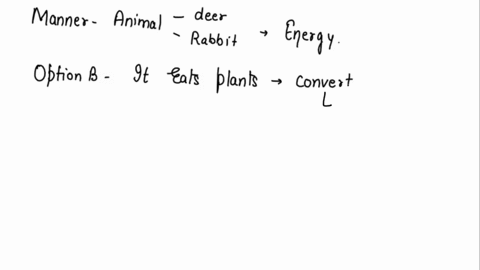 Manner - Animal - deer
- Rabbit → Energy.
Option B - It Eats plants → convert
L